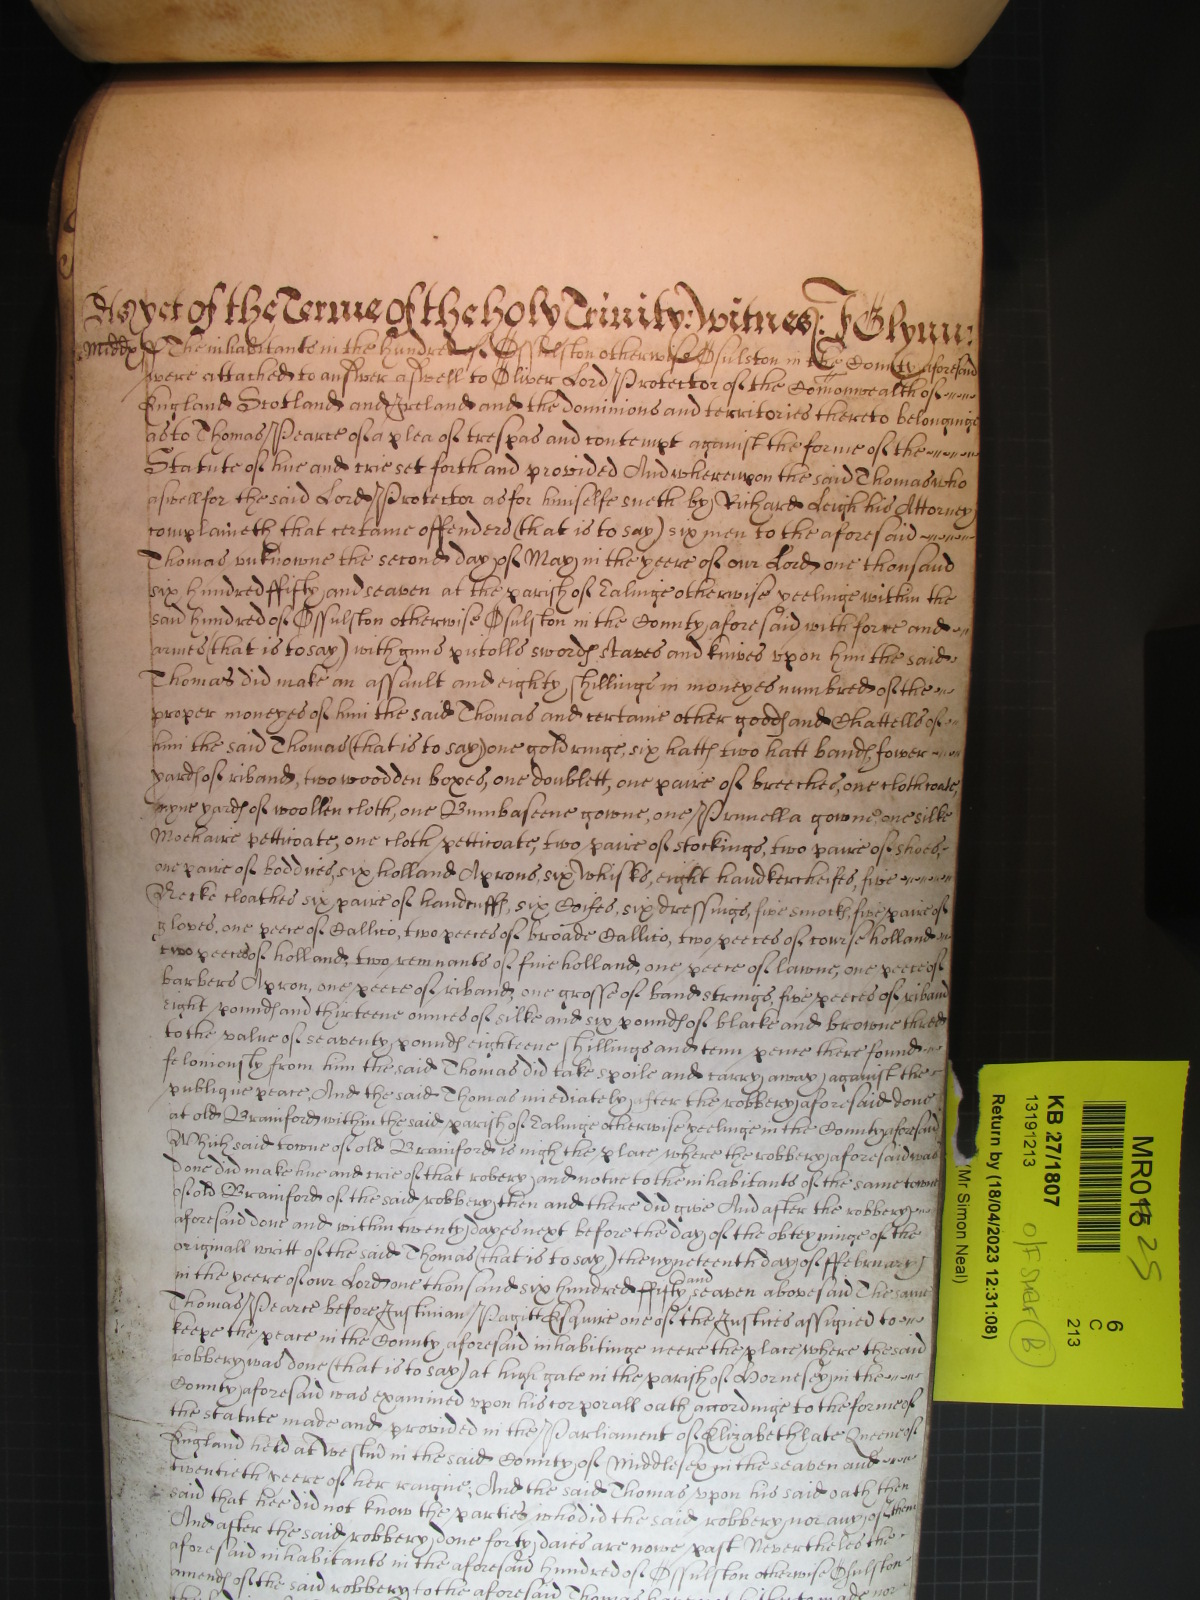 As yet of the Terme of the holy Trinity: witnes: J Glynn:
Middx ss The inhabitants in the hundred of Ossulston otherwise Osulston in the County aforesaid
were attached to answer aswell to Oliver Lord Protector of the Comonwealth of
England Scotland and Ireland and the dominions and territories thereto belonginge
as to Thomas Pearce of a plea of trespas and contempt against the forme of the
Statute of hue and crie set forth and provided And whereupon the said Thomas who
aswell for the said Lord Protector as for himselfe sueth by Richard Leigh his Attorney
complaineth that certaine offenders (that is to say) six men to the aforesaid
Thomas unknowne the second day of May in the yeere of our Lord one thousand
six hundred ffifty and seaven at the parish of Ealinge otherwise yeelinge within the
said hundred of Ossulston otherwise Osulston in the County aforesaid with force and
armes (that is to say) with guns pistolls swords staves and knives upon him the said
Thomas did make an assault and eighty shillings in moneyes numbred of the
proper moneyes of him the said Thomas and certaine other goods and Chattells of
him the said Thomas (that is to say) one gold ringe, six hatts two hatt bands, fower
yards of riband, two woodden boxes, one doublett, one paire of breeches, one cloth coate,
nyne yards of woollen cloth, one Bumbaseene gowne, one Prunella gowne, one silke
Mochaire petticoate, one cloth petticoate, two paire of stockings, two paire of shoes,
one paire of boddies, six holland Aprons, six whisks, eight handkercheifes, five
Necke cloathes six paire of handcuffs, six Coifes, six dressings, five smocks, five paire of
gloves, one peece of Callico, two peeces of broade Callico, two peeces of course holland
two peeces of holland, two remnants of fine holland, one peece of lawne, one peece of
barbers Apron, one peece of riband, one grosse of band strings, five peeces of riband
eight pounds and thirteene ounces of silke and six pounds of blacke and browne thred
to the value of seaventy pounds eighteene shillings and tenn pence there found
feloniously from him the said Thomas did take spoile and carry away against the
publique peace, And the said Thomas imediately after the robbery aforesaid done
at old Brainford within the said parish of Ealinge otherwise yeelinge in the County aforesaid
Which said towne of old Brainford is nigh the place where the robbery aforesaid was
done did make hue and crie of that robery and notice to the inhabitants of the same towne
of old Brainford of the said robbery then and there did give And after the robbery
aforesaid done and within twenty dayes next before the day of the obteyninge of the
originall writt of the said Thomas (that is to say) the nyneteenth day of ffebruary
in the yeere of our Lord one thousand six hundred ffifty and seaven abovesaid The same
Thomas Pearce before Justinian Pagitt Esquire one of the Justices assigned to
keepe the peace in the County aforesaid inhabitinge neere the place where the said
robbery was done (that is to say) at high gate in the parish of Hornesey in the
County aforesaid was examined upon his corporall oath accordinge to the forme of
the statute made and provided in the Parliament of Elizabeth late Queene of
England held at Westm in the said County of Middlesex in the seaven and
twentieth yeere of her raigne, And the said Thomas upon his said oath then
said that hee did not know the parties who did the said robbery nor any of them
And after the said robbery done forty daies are nowe past Nevertheles the
aforesaid inhabitants in the aforesaid hundred of Ossulston otherwise Osulston
amends of the said robbery to the aforesaid Thomas have not hitherto made nor
MR01 25
6
C
213
KB 27/1807
13191213
O/F SMAF (B)
Return by (18/04/2023 12:31:08)
(Mr Simon Neal)